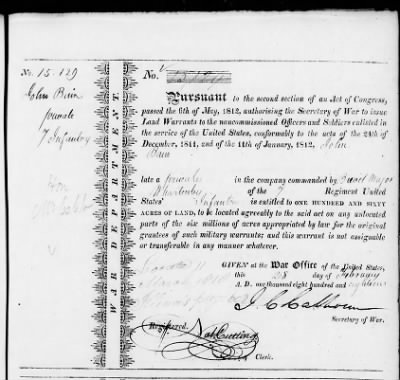 No. 15.129
John Bain
private
7 Infantry
WAR DEPARTMENT.
No.
PURSUANT to the second section of an Act of Congress,
passed the 6th of May, 1812, authorising the Secretary of War to issue
Land Warrants to the noncommissioned Officers and Soldiers enlisted in
the service of the United States, conformably to the acts of the 24th of
December, 1811, and of the 11th of January, 1812, John
Bain
late a private in the company commanded by Brevet Major
of the 7 Regiment United
States' Infantry is entitled to ONE HUNDRED AND SIXTY
ACRES OF LAND, to be located agreeably to the said act on any unlocated
parts of the six millions of acres appropriated by law for the original
grantees of such military warrants; and this warrant is not assignable
or transferable in any manner whatever.
GIVEN at the War Office of the United States,
this 28 day of February
A. D. one thousand eight hundred and eighteen
J. C. Calhoun
Secretary of War.
Registered. Nat Cutting
Clerk.